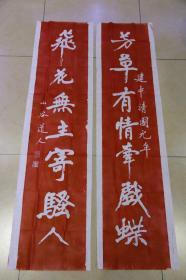 芳草有情牽戲蝶
建中靖國元年
飛花無主寄騷人
山谷道人